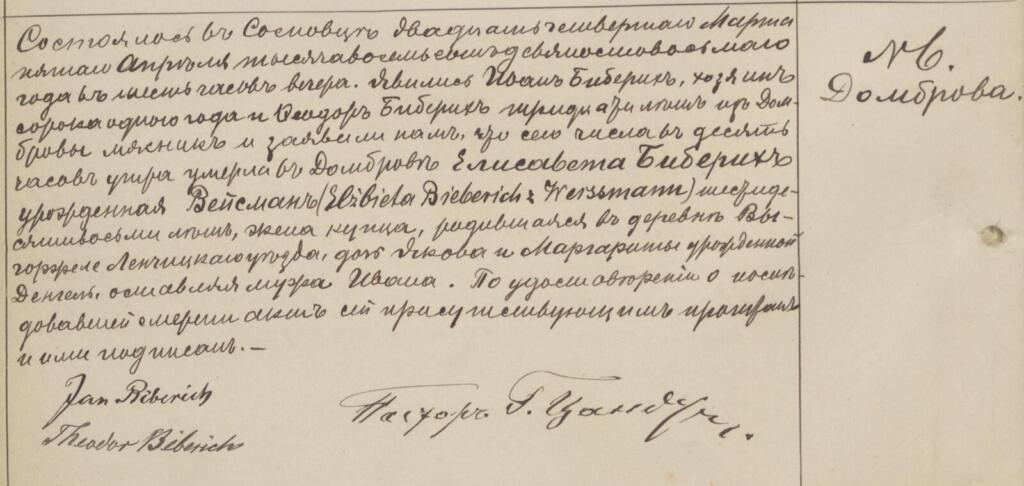 Состоялось въ Сосновцѣ двадцать четвертаго Марта
пятаго Апрѣля тысяча восемьсотъ девяносто восьмаго
года въ шесть часовъ вечера. Явились Иванъ Биберихъ, хозяинъ
сорока одного года и Ѳеодоръ Биберихъ тридцати лѣтъ изъ Дом-
бровы мясникъ и заявили намъ, что сего числа въ десять
часовъ утра умерла въ Домбровѣ Елисавета Биберихъ
урожденная Вейсманъ (Elżbieta Bieberich z Weissmann) шестиде-
сяти восьми лѣтъ, жена купца, родившаяся въ деревнѣ Вы-
Ленчицкаго уѣзда, дочь Якова и Маргариты урожденной
Денгель, оставляя мужа Ивана. По удостовѣреніи о послѣ-
довавшей смерти актъ сей присутствующимъ прочитанъ
и ими подписанъ. —
Jan Biberich
Theodor Biberich
Пасторъ Г. Цандеръ.
№ 6.
Домброва.